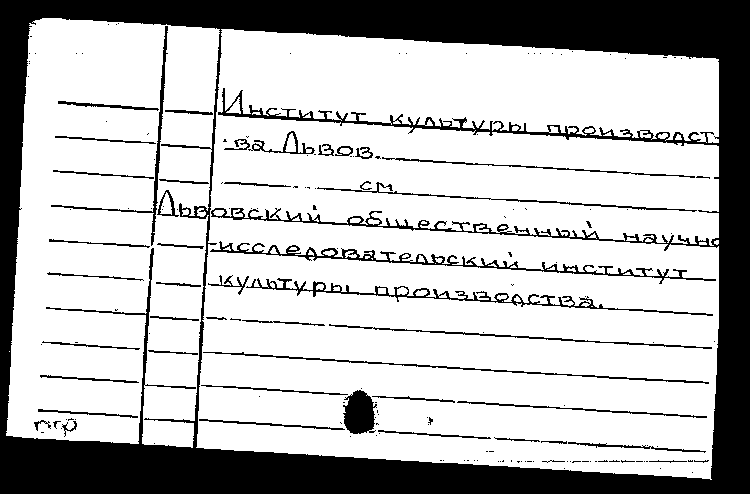 Институт культуры производст-
ва. Львов.
см.
Львовский общественный научно
-исследовательский институт
культуры производства.